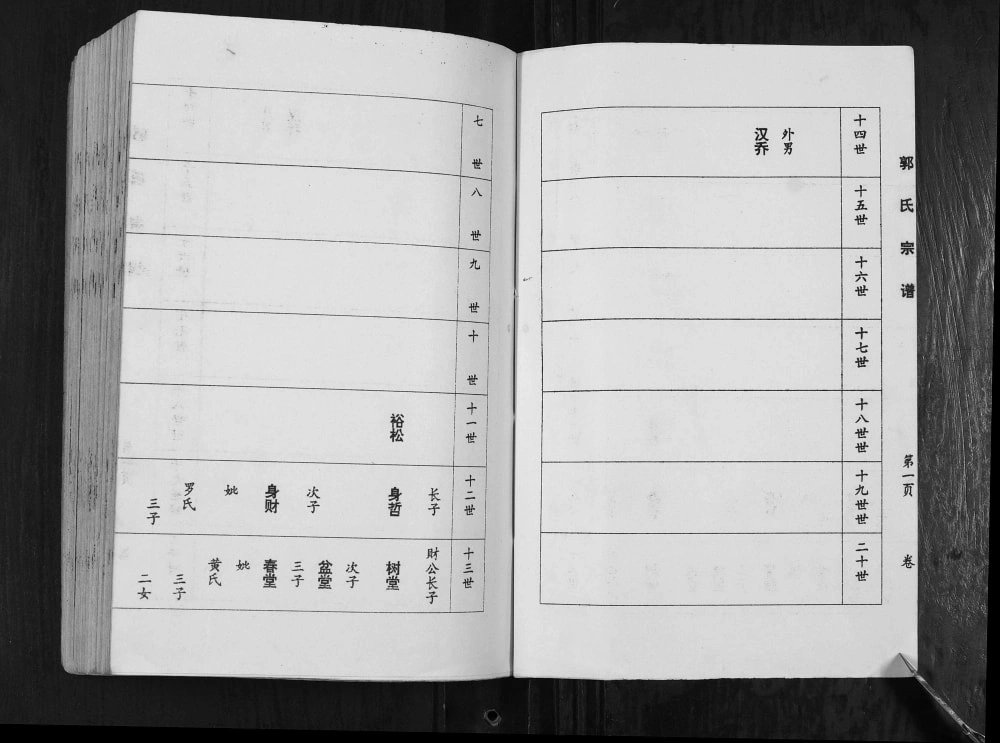 郭氏宗谱
第一页
卷
十四世
外男
汉乔
十五世
十六世
十七世
十八世世
十九世世
二十世
七世
八世
九世
十世
十一世
裕松
十二世
长子
身哲
次子
身财
妣
罗氏
三子
十三世
财公长子
树堂
次子
盆堂
三子
春堂
妣
黄氏
三子
二女